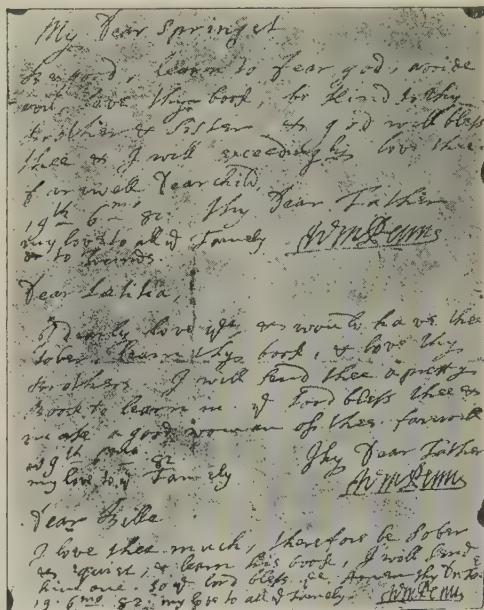 My Dear Springet
be good, learn to fear god, avoide
evil, love thy book, be kind to thy
Brother & Sister & god will bless
thee & I will exceedingly love thee
farwell Dear child,
19th 6mo 82. thy Dear Father
my love to all ye Famely WmPenn
& to Friends.
Dear Laetitia,
I Dearly love ye, & would have thee
sober, learn thy book, & love thy
Brothers. I will send thee a pretty
Book to learn in. ye Lord bless thee &
make a good woman of thee. farewell
19th 6mo 82 Thy Dear Father
my love to ye Famely WmPenn
Dear Bille
I love thee much, therefore be sober
& quiet, & learn his book, I will send
him one. so ye lord bless ye. Amen
19. 6mo. 82. my love to all ye Famely. WmPenn